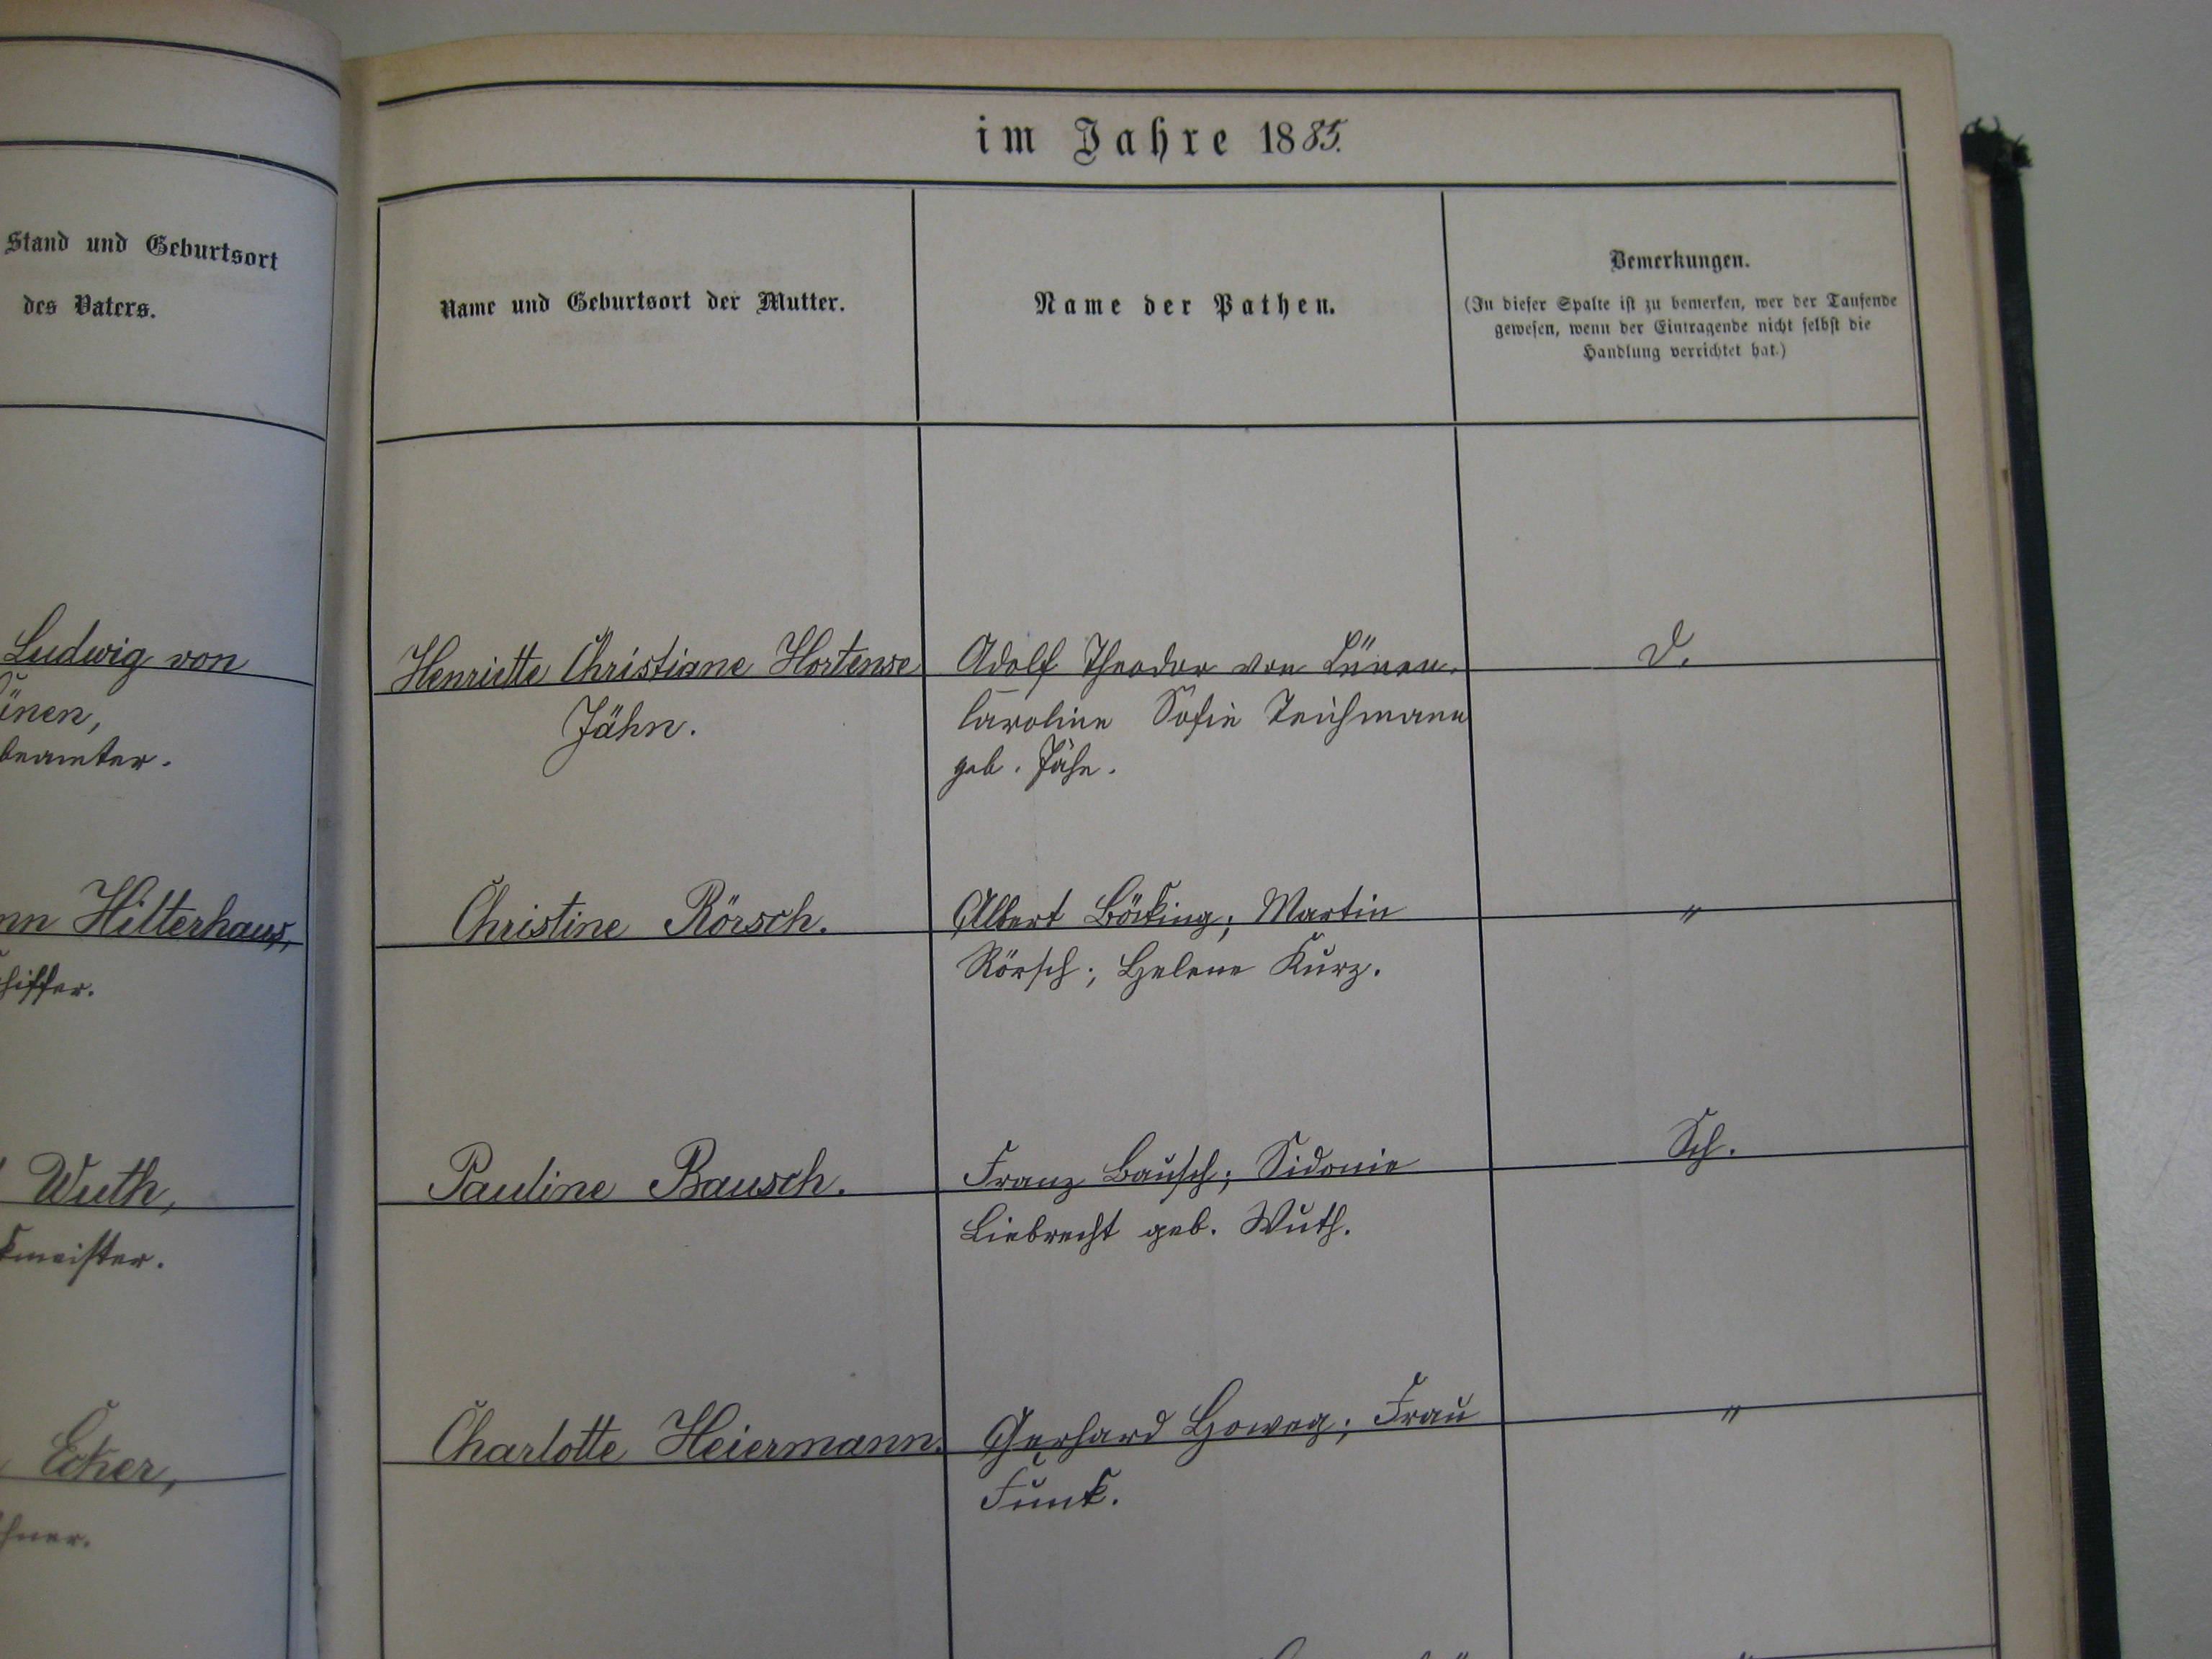 im Jahre 1885.
Stand und Geburtsort
des Vaters.
Name und Geburtsort der Mutter.
Name der Pathen.
Bemerkungen.
(In dieser Spalte ist zu bemerken, wer der Taufende
gewesen, wenn der Eintragende nicht selbst die
Handlung verrichtet hat.)
Ludwig von
ünen,
beamter.
Henriette Christiane Hortense
Jähn.
Adolf Theodor von Lünen.
Caroline Sofie Teichmann
geb. Jähn.
D.
nn Hilterhaus,
hiffer.
Christine Rörsch.
Albert Böcking; Martin
Rörsch; Helene Kurz.
"
Wuth,
kmeister.
Pauline Bausch.
Franz Bausch; Sidonie
Liebrecht geb. Wuth.
Sch.
Ecker,
hner.
Charlotte Heiermann.
Gerhard Howeg; Frau
Funk.
"